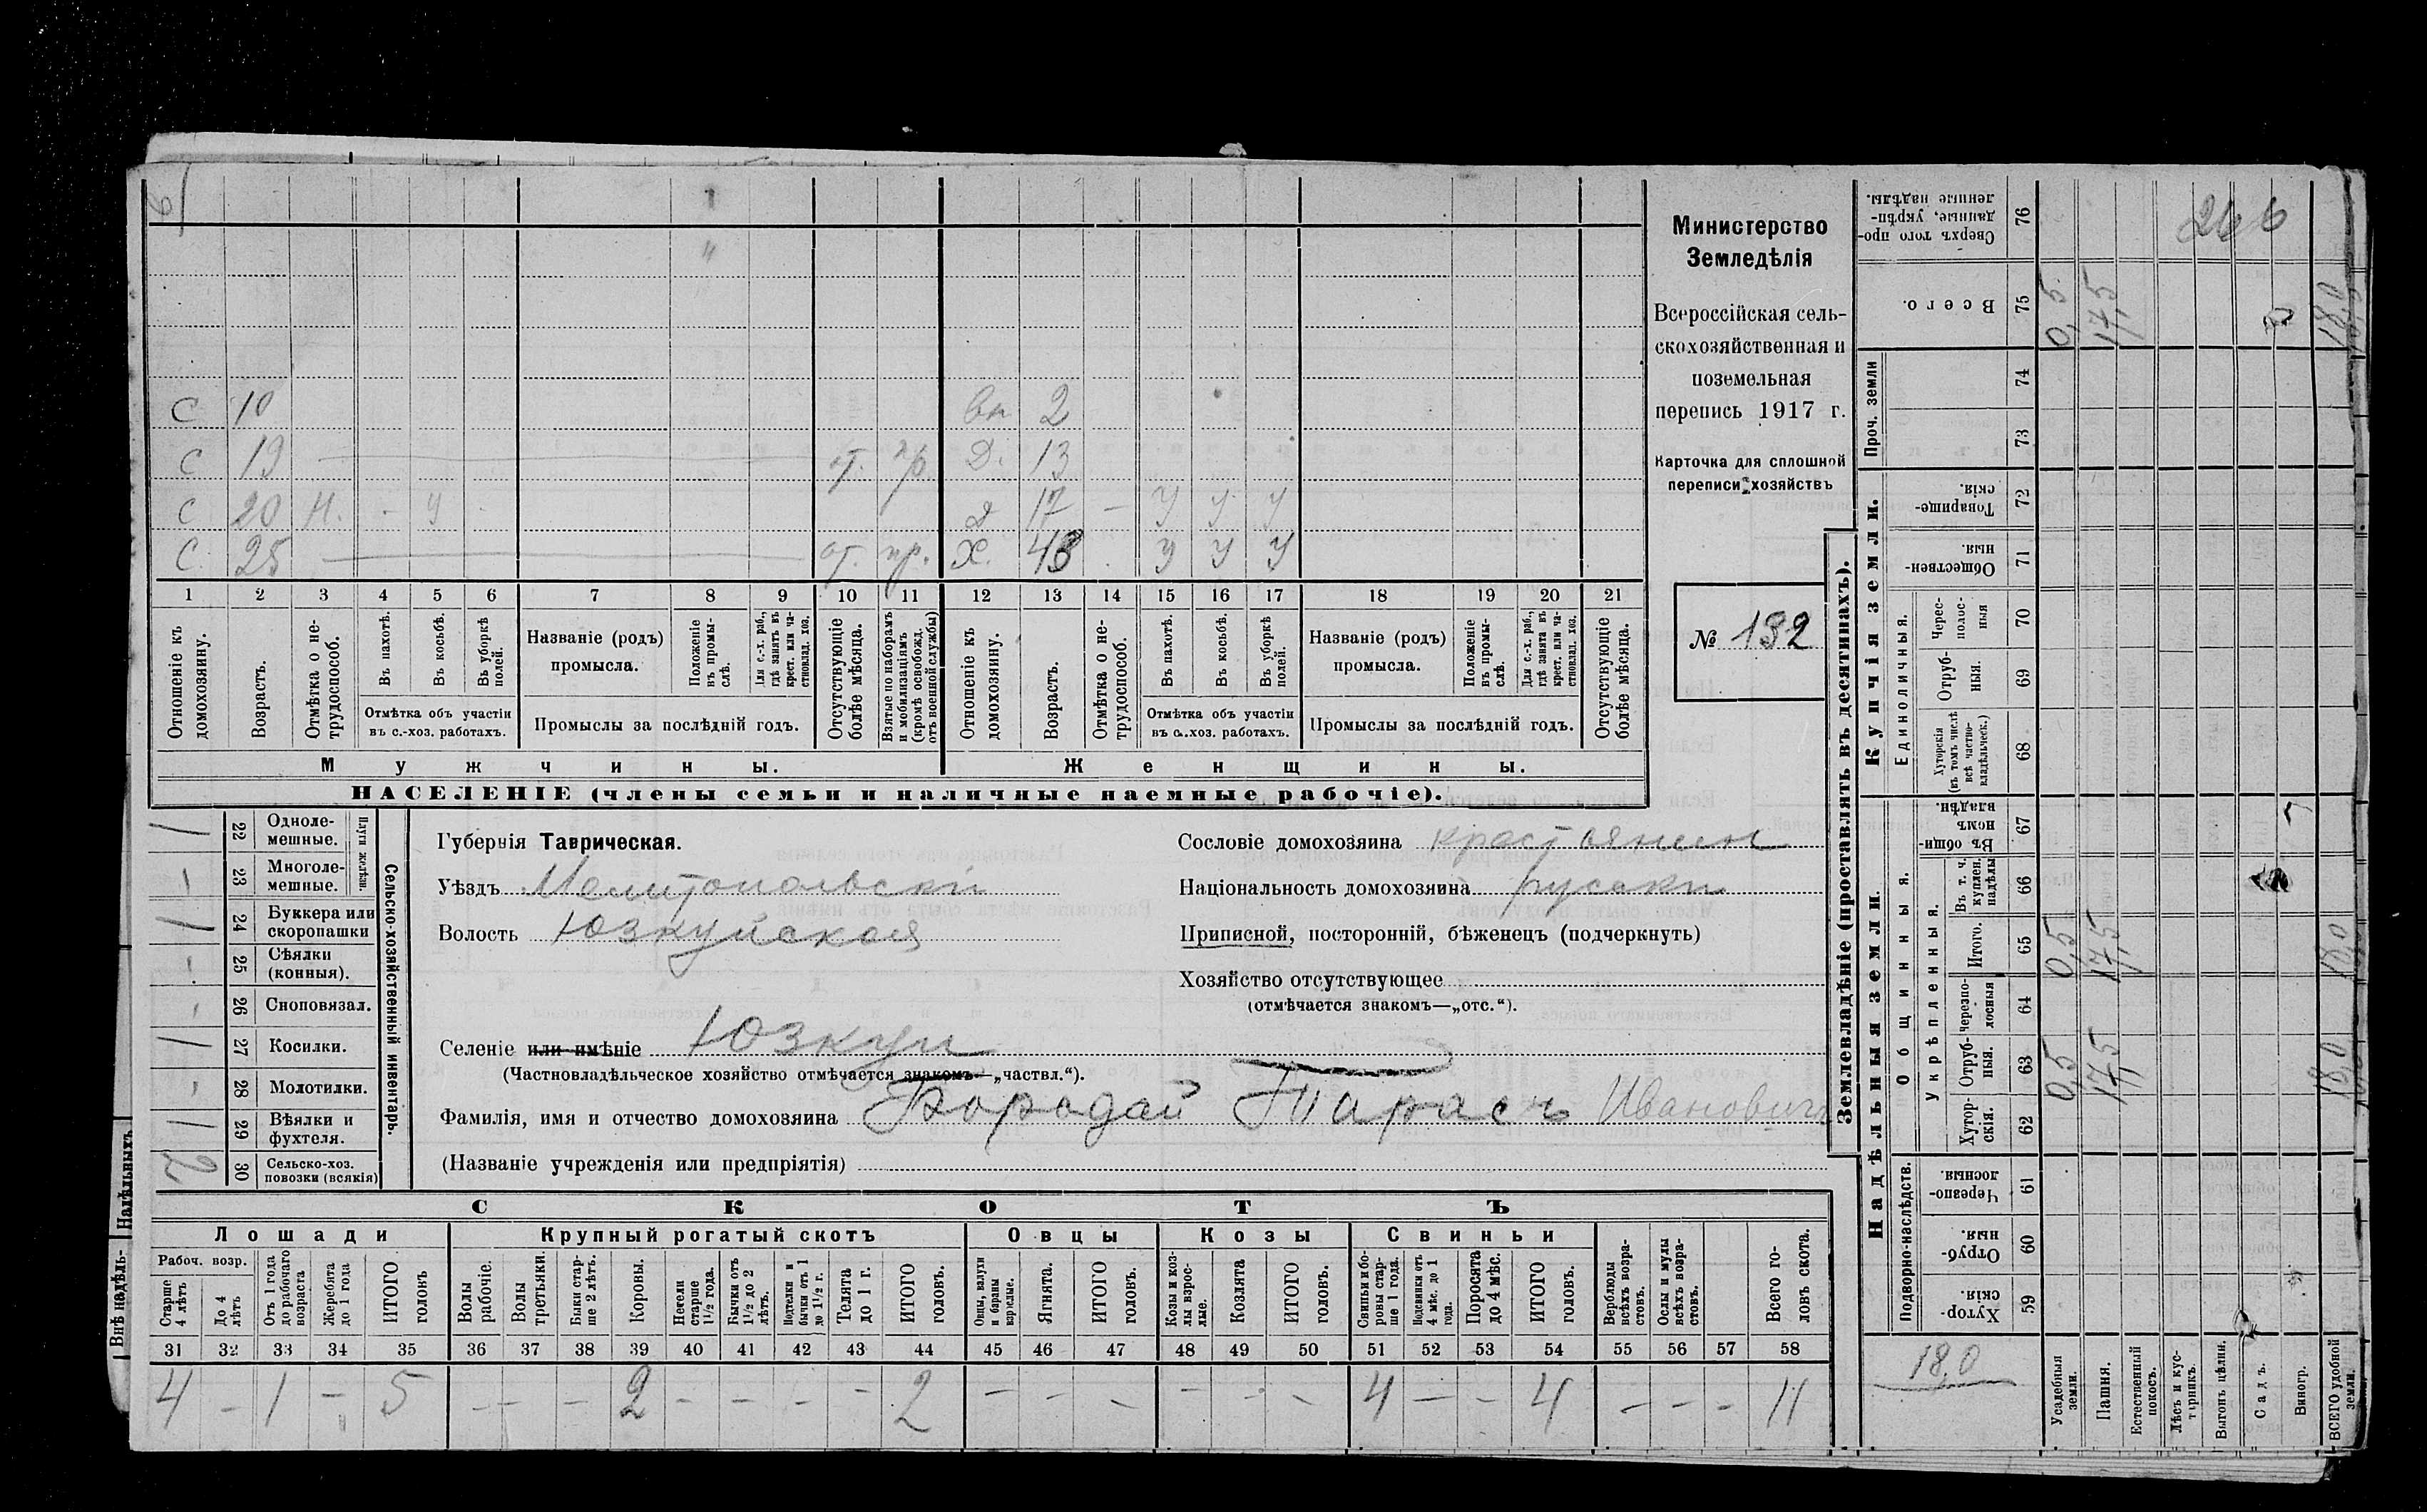 6
С 10 вн 2
С 19 от. пр. Д. 13
С 20 Н. - у д 17 - у у у
С. 25 от. пр. Х. 43 у у у
1 2 3 4 5 6 7 8 9 10 11 12 13 14 15 16 17 18 19 20 21
Отношеніе къ домохозяину.
Возрастъ.
Отмѣтка о не-
трудоспособ.
Въ пахотѣ.
Въ косьбѣ.
Въ уборкѣ
полей.
Отмѣтка объ участіи
въ с.-хоз. работахъ.
Названіе (родъ)
промысла.
Положеніе
въ промы-
слѣ.
Для с.-х. раб.,
гдѣ занятъ въ
крест. или ча-
стновлад. хоз.
Промыслы за послѣдній годъ.
Отсутствующіе
болѣе мѣсяца.
Взятые по наборамъ
и мобилизаціямъ
(кромѣ освобожд.
отъ военной службы)
Отношеніе къ
домохозяину.
Возрастъ.
Отмѣтка о не-
трудоспособ.
Въ пахотѣ.
Въ косьбѣ.
Въ уборкѣ
полей.
Отмѣтка объ участіи
въ с.-хоз. работахъ.
Названіе (родъ)
промысла.
Положеніе
въ промы-
слѣ.
Для с.-х. раб.,
гдѣ занята въ
крест. или ча-
стновлад. хоз.
Промыслы за послѣдній годъ.
Отсутствующіе
болѣе мѣсяца.
Мужчины. Женщины.
НАСЕЛЕНІЕ (члены семьи и наличные наемные рабочіе).
Министерство
Земледѣлія
Всероссійская сель-
скохозяйственная и
поземельная
перепись 1917 г.
Карточка для сплошной
переписи хозяйствъ
№ 132
Плуги желѣзн.
22 Одноле-
мешные.
23 Многоле-
мешные.
24 Буккера или
скоропашки
25 Сѣялки
(конныя).
26 Сноповязал.
27 Косилки.
28 Молотилки.
29 Вѣялки и
фухтеля.
2 30 Сельско-хоз.
повозки (всякія)
Сельско-хозяйственный инвентарь.
Губернія Таврическая.
Уѣздъ Мелитопольскій
Волость Юзкуйская
Сословіе домохозяина крестьянин
Національность домохозяина русский
Приписной, посторонній, бѣженецъ (подчеркнуть)
Хозяйство отсутствующее
(отмѣчается знакомъ—„отс.“).
Селеніе или имѣніе Юзкуи
(Частновладѣльческое хозяйство отмѣчается знакомъ—„частвл.“).
Фамилія, имя и отчество домохозяина Бородай Тарасъ Ивановичъ
(Названіе учрежденія или предпріятія)
СКОТЪ
Лошади Крупный рогатый скотъ Овцы Козы Свиньи
Рабоч. возр.
Старше
4 лѣтъ
До 4
лѣтъ
Отъ 1 года
до рабочаго
возраста
Жеребята
до 1 года
ИТОГО
головъ
Волы
рабочіе.
Волы
третьяки.
Быки стар-
ше 2 лѣтъ.
Коровы.
Нетели
старше
1½ года.
Бычки отъ
1½ до 2
лѣтъ.
Подтелки и
бычки отъ 1
до 1½ г.
Телята
до 1 г.
ИТОГО
головъ.
Овцы, валухи
и бараны
взрослые.
Ягнята.
ИТОГО
головъ.
Козы и коз-
лы взрос-
лые.
Козлята
ИТОГО
головъ.
Свиньи и бо-
ровы стар-
ше 1 года.
Подсвинки отъ
4 мѣс. до 1
года.
Поросята
до 4 мѣс.
ИТОГО
головъ.
Верблюды
всѣхъ возра-
стовъ.
Ослы и мулы
всѣхъ возра-
стовъ.
Всего го-
ловъ скота.
31 32 33 34 35 36 37 38 39 40 41 42 43 44 45 46 47 48 49 50 51 52 53 54 55 56 57 58
4 - 1 - 5 - - - 2 - - - - 2 - - - - - - 4 - - 4 - - - 11
Землевладѣніе (проставлять въ десятинахъ).
Сверхъ того про-
данные, укрѣп-
ленные надѣлы.
76
266
Всего.
75 0,5 17,5 18,0
Проч. земли
74
73
Купчія земли.
Товарище-
скія.
72
Обществен-
ныя.
71
Единоличныя.
Черес-
полос-
ныя
70
Отруб-
ныя.
69
Хуторскія
(въ томъ числѣ
всѣ частно-
владѣльческ.)
68
Надѣльныя земли.
Общинныя.
Въ общи-
номъ
владѣн.
67
Укрѣпленныя.
Въ т. ч.
куплен.
надѣлы
66
Итого.
65 0,5 17,5 18,0
Черезпо-
лосныя
64
Отруб-
ныя.
63 0,5 17,5 18,0
Хутор-
скія.
62
Подворно-наслѣдств.
Черезпо-
лосныя.
61
Отруб-
ныя.
60
Хутор-
скія.
59
18,0
Усадебныя
земли.
Пашня.
Естественный
покосъ.
Лѣсъ и кус-
тарникъ.
Выгонъ цѣлин.
Садъ.
Виногр.
ВСЕГО удобной
земли.
Надѣльныхъ
Внѣ надѣль-